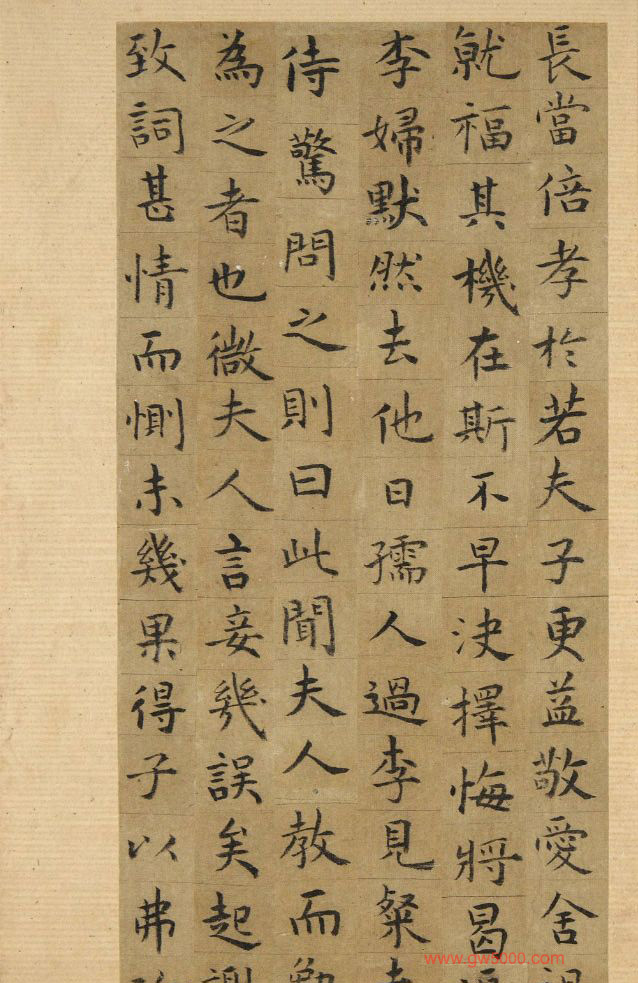 長當倍孝於若夫子更益敬愛舍
就福其機在斯不早決擇悔將曷
李婦默然去他日孺人過李見粲
侍驚問之則曰此聞夫人教而勉
為之者也微夫人言妾幾誤矣起謝
致詞甚情而惻未幾果得子以弗
www.gw8000.com